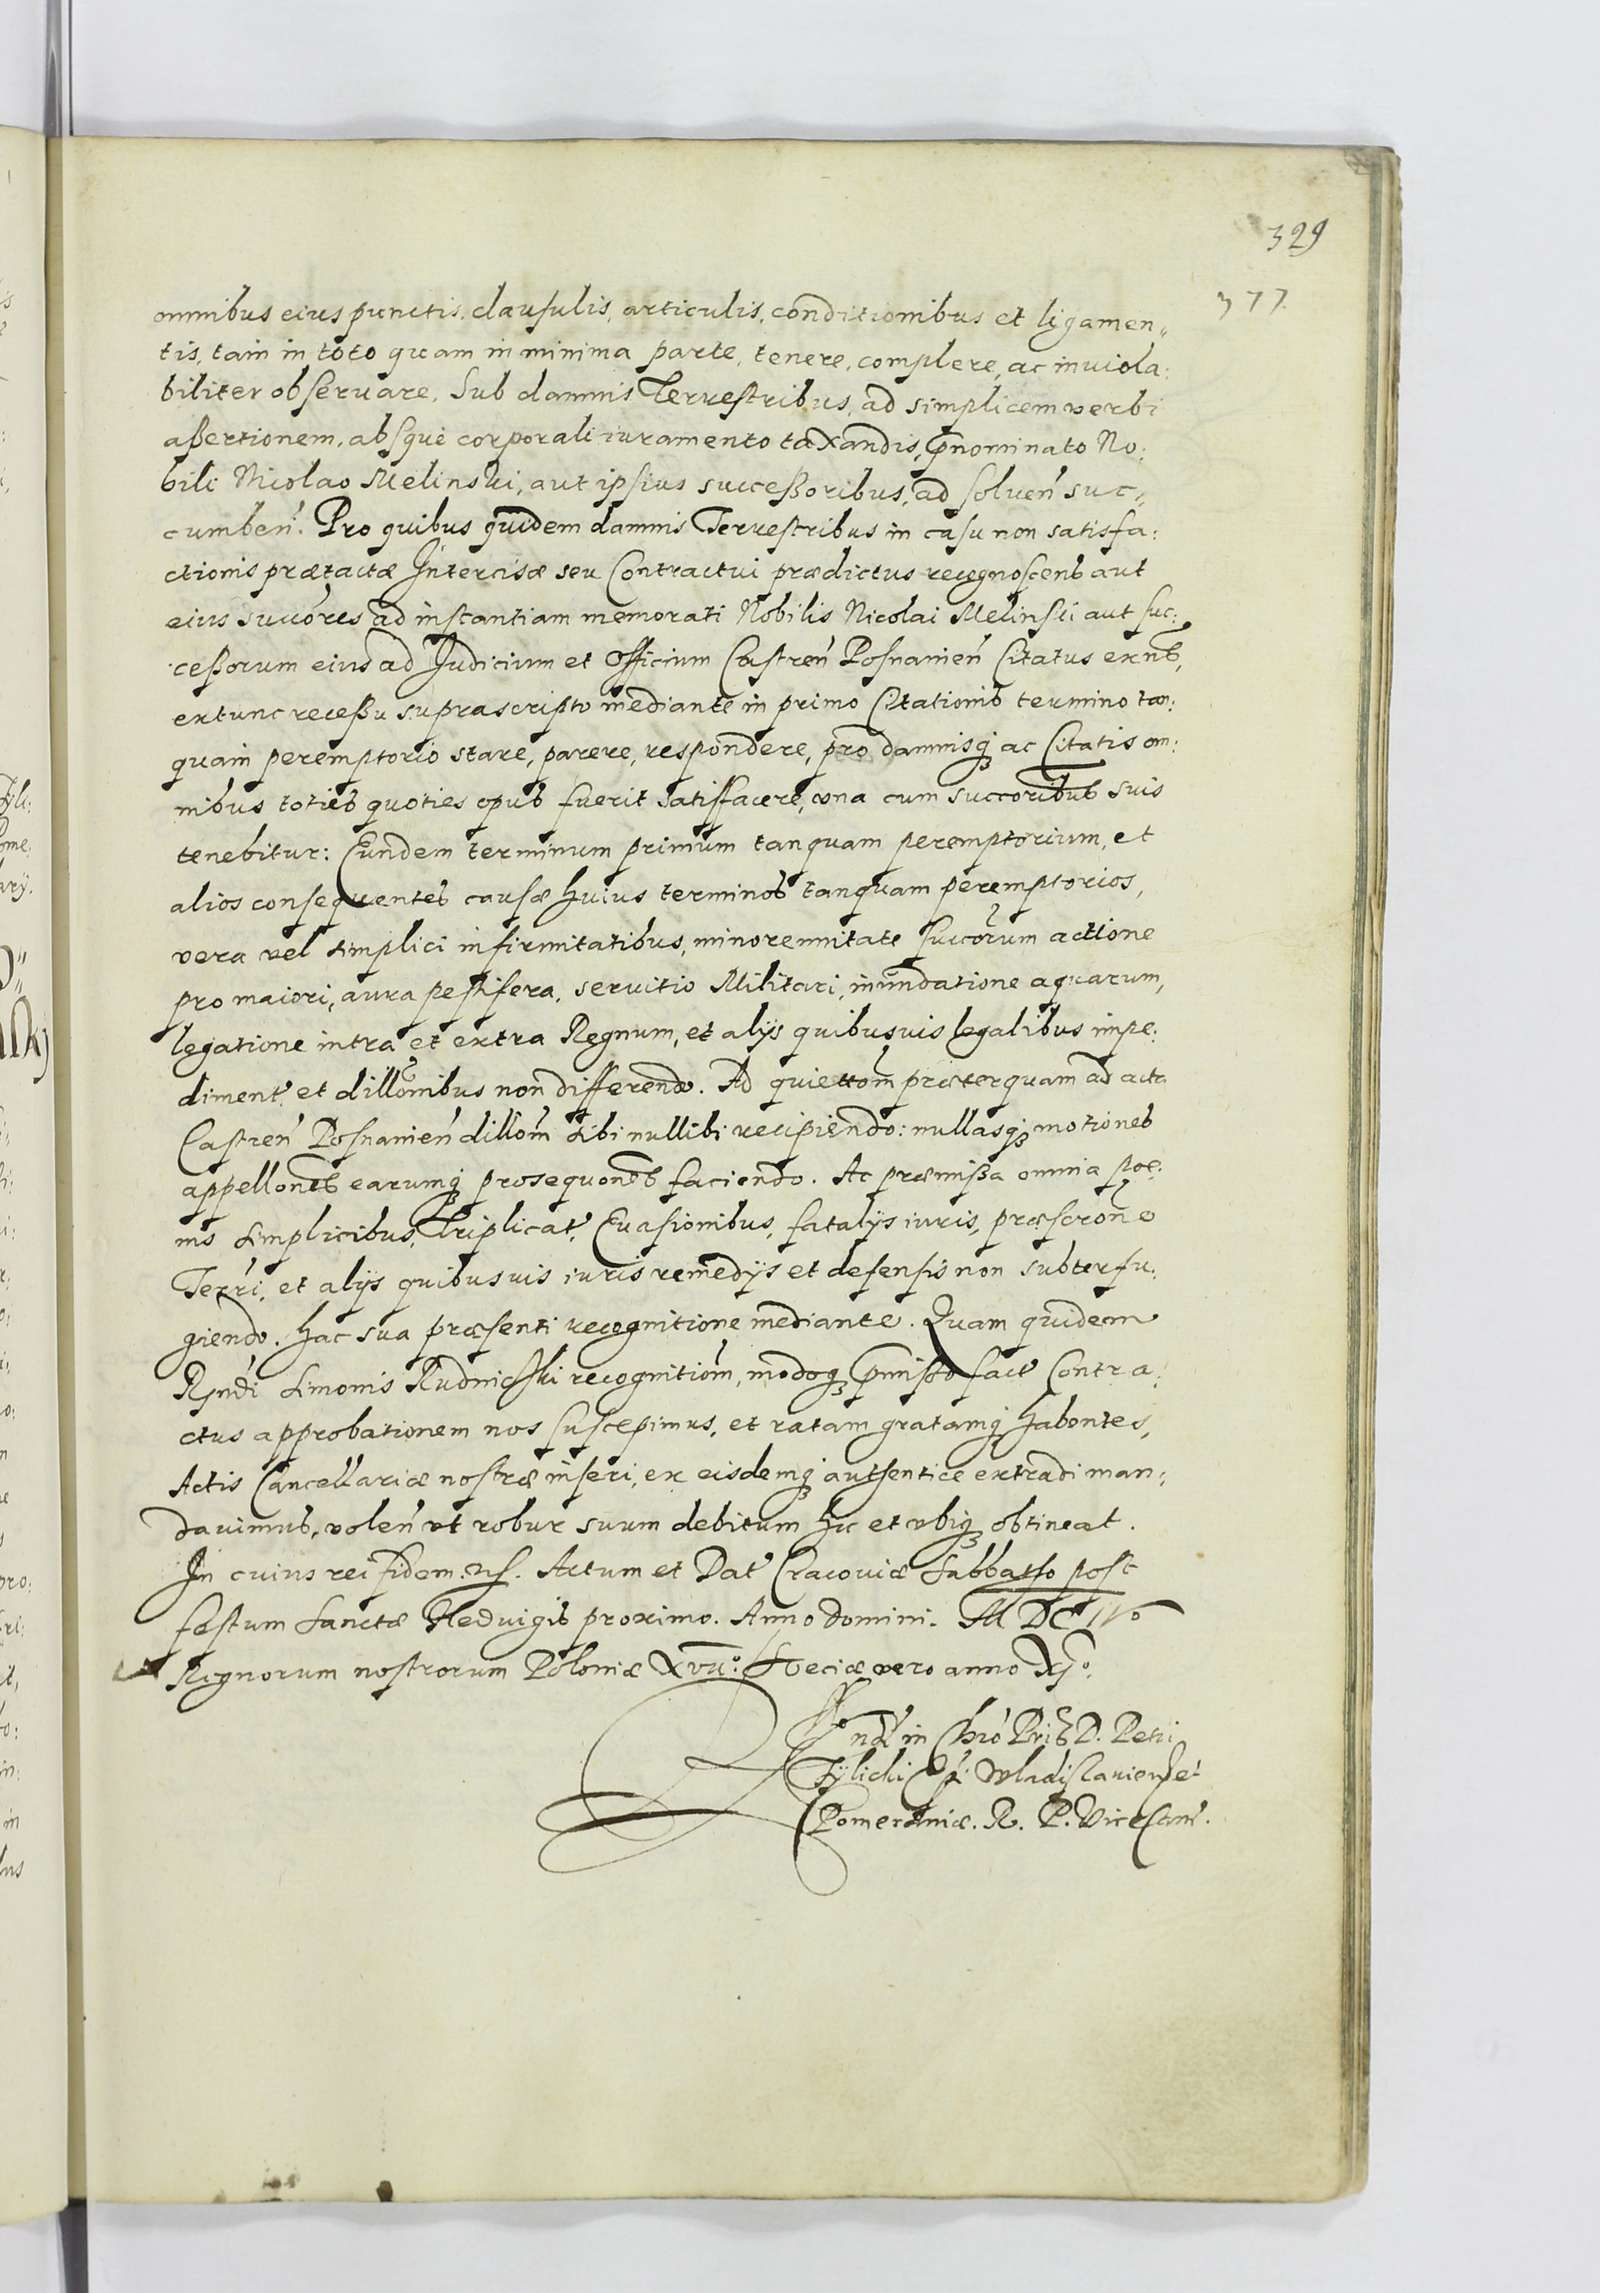 329
377.
omnibus eius punctis, clausulis, articulis, conditionibus et ligamen„
tis, tam in toto quam in minima parte, tenere, complere, ac inuiola:
biliter obseruare. Sub damnis Terrestribus, ad simplicem verbi
aßertionem, absque corporali iuramento taxandis, pnominato No:
bili Nicolao Melinski, aut ipsius succeßoribus, ad soluen̄ suc„
cumben̄. Pro quibus quidem damnis Terrestribus in casu non satisfa:
ctionis prætactæ Intercisæ seu Contractui prædictus recognoscens aut
eius succōres ad instantiam memorati Nobilis Nicolai Melinski aut suc:
ceßorum eius ad Iudicium et Officium Castren̄ Posnanien̄ Citatus exn̄s,
extunc receßu suprascripto mediante in primo Citationis termino tan:
quam peremptorio stare, parere, respondere, pro damnisq; ac Citatis om:
nibus toties quoties opus fuerit satisfacere, vna cum succoribus suis
tenebitur: Eundem terminum primum tanquam peremptorium, et
alios consequentes causæ huius terminos tanquam peremptorios,
vera vel simplici infirmitatibus, minorennitate succorum actione
pro maiori, aura pestifera, seruitio Militari, inundatione aquarum,
legatione intra et extra Regnum, et alijs quibusuis legalibus impe:
diment et dillonibus non differendo. Ad quiettom præterquam ad acta
Castren̄ Posnanien̄ dillom̄ sibi nullibi recipiendo: nullasq; motiones
appellones earumq; prosequones faciendo. Ac præmißa omnia poe:
nis simplicibus, Triplicat, Euasionibus, fatalijs iuris, præscrone
Terri, et alijs quibusuis iuris remedijs et defensis non subterfu:
giendo. hac sua præsenti recognitione mediante. Quam quidem
Rn̄di Simonis Rudnicski recognitiom̄, modoq; pmißo fact Contra:
ctus approbationem nos suscepimus, et ratam gratamq; habentes,
Actis Cancellariæ nostræ inseri, ex eisdemq; authentice extradi man:
dauimus, volen̄ vt robur suum debitum hic et vbiq; obtineat.
In cuius rei fidem. Actum et Dat Cracouiæ Sabbatho post
festum Sanctæ Heduigis proximo. Anno domini. M DC IVo
Regnorum nostrorum Poloniæ XVIIo. Sueciæ vero anno XIo.
Rn̄di in Chro Pris D. Petri
Tylicki Ep̄i Vladislauien̄ et
Pomeraniæ. R. P. Vicecanc̄.